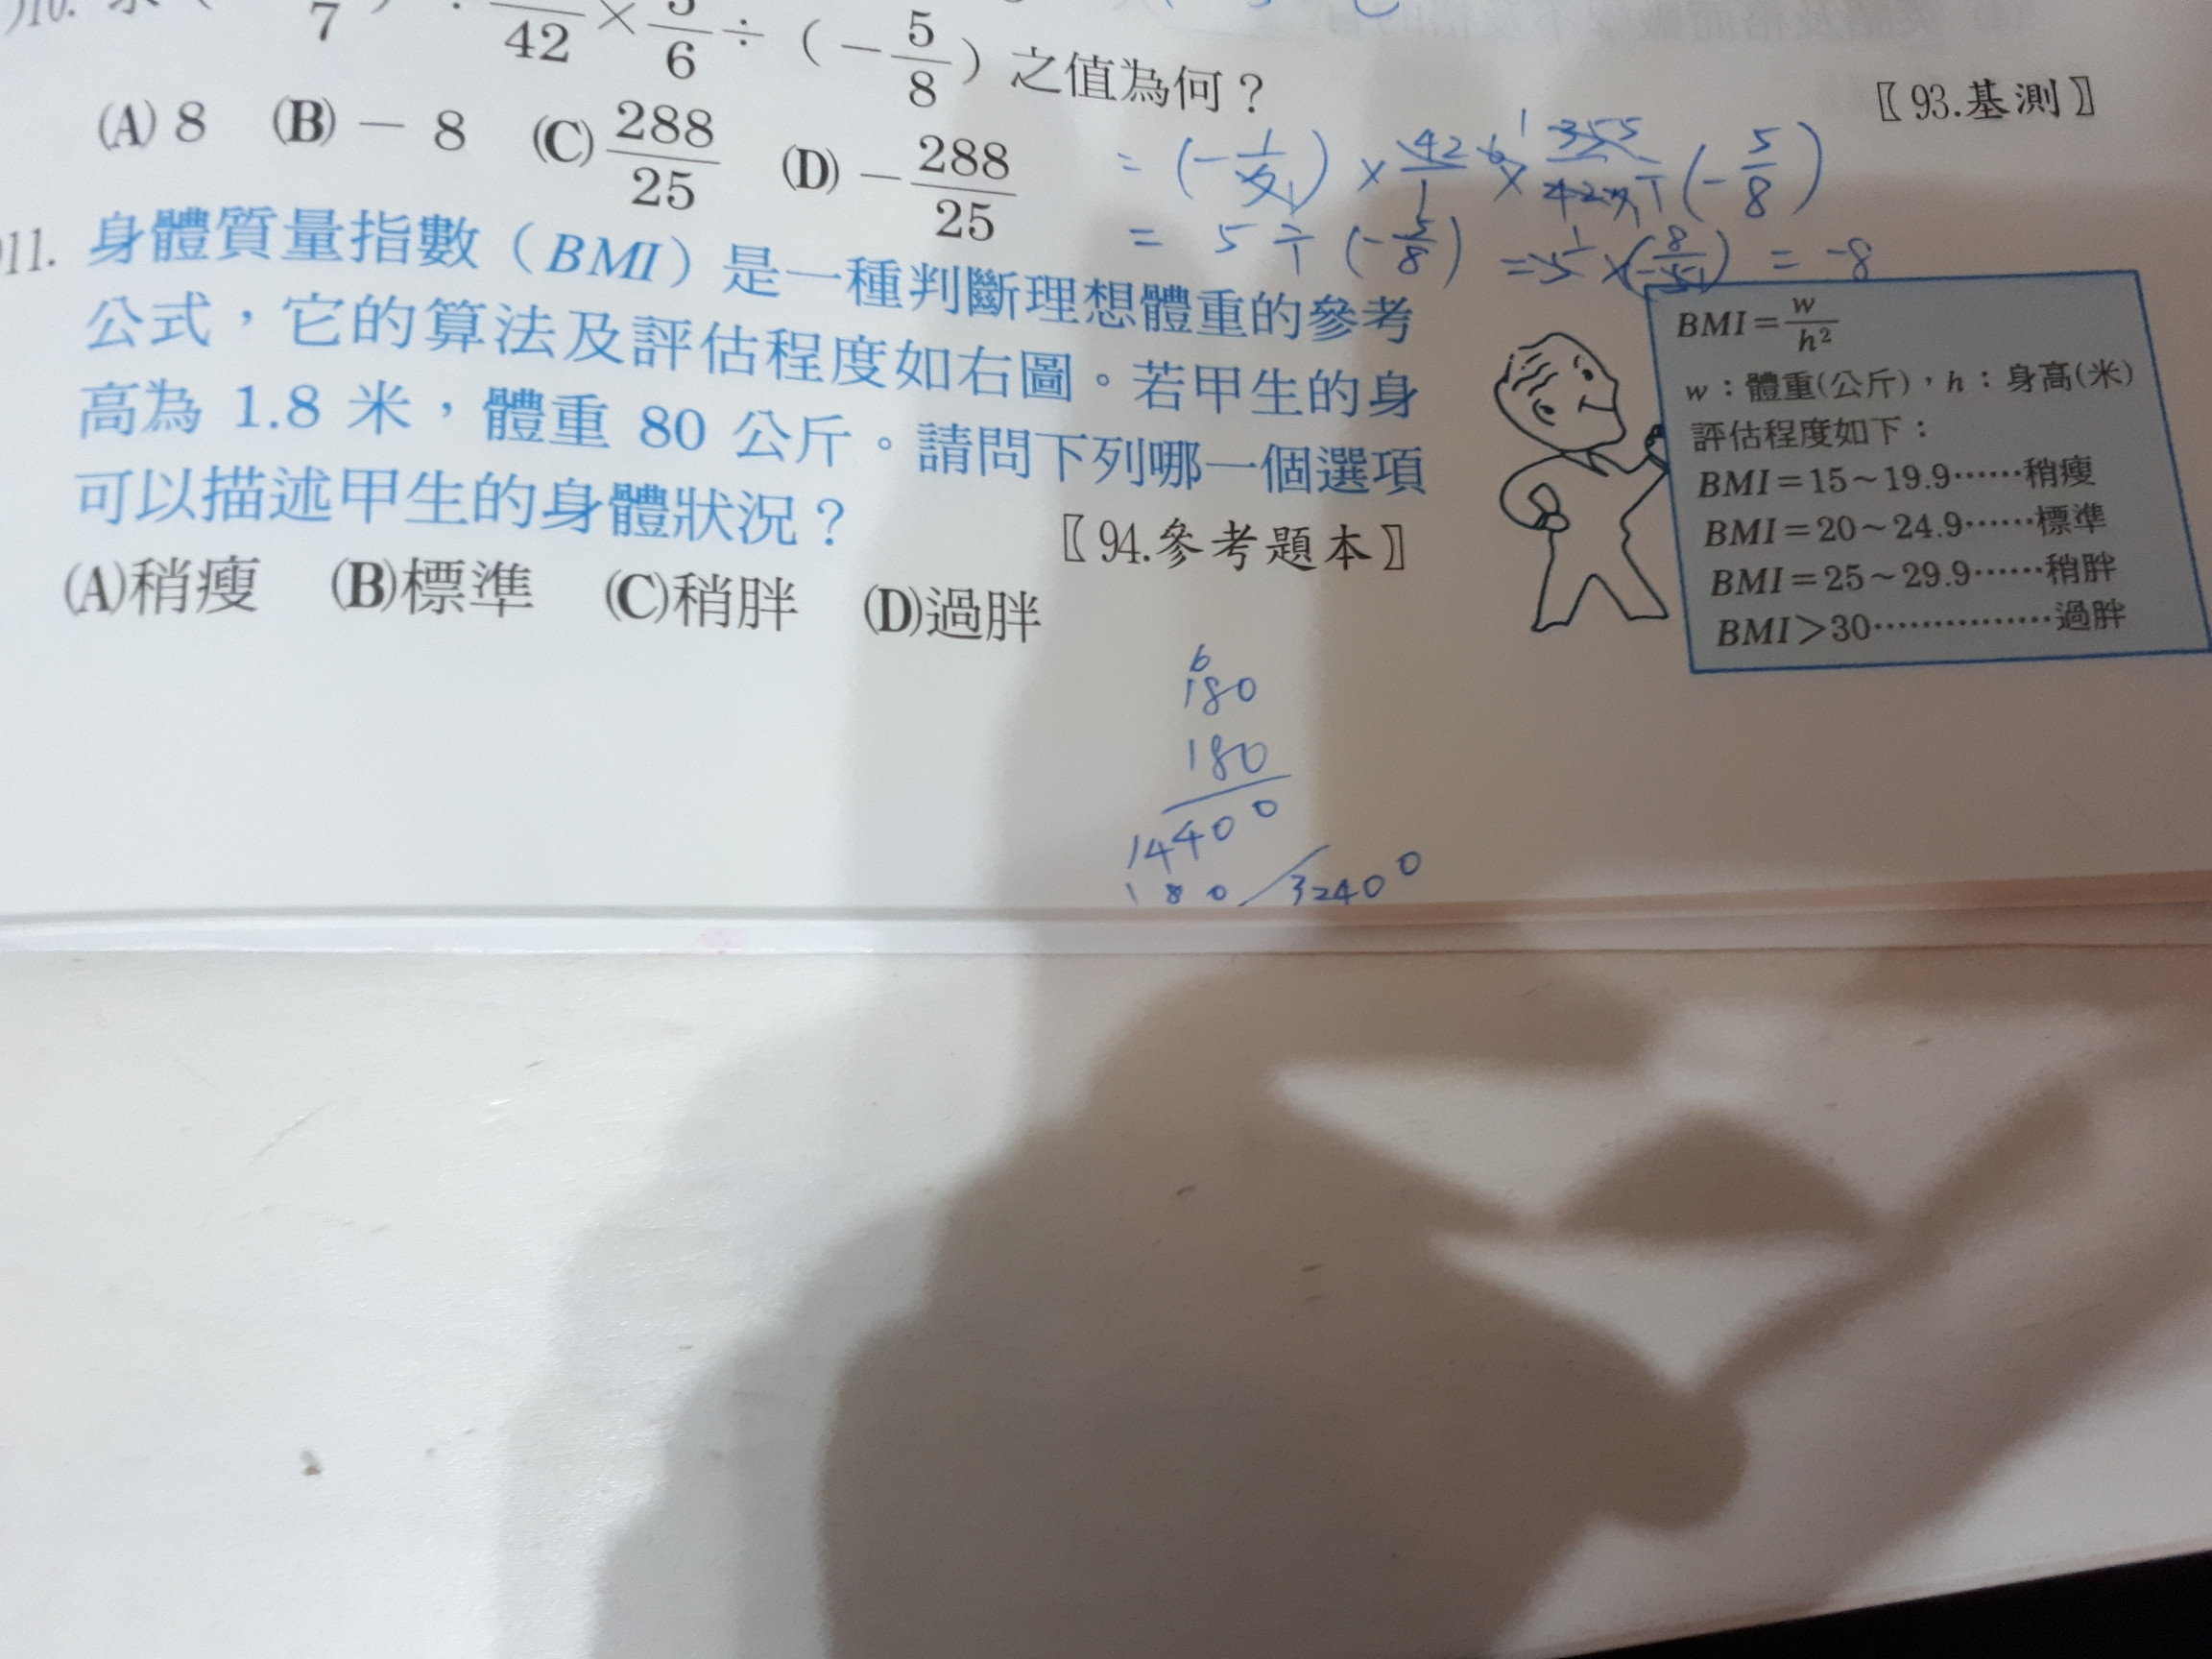 10.
7
42 × 6 ÷ ( − 5/8 ) 之值為何？
〖93.基測〗
(A) 8 (B) − 8 (C) 288/25 (D) − 288/25
= 5 ÷ (− 5/8) = = −8
11. 身體質量指數（BMI）是一種判斷理想體重的參考
公式，它的算法及評估程度如右圖。若甲生的身
高為 1.8 米，體重 80 公斤。請問下列哪一個選項
可以描述甲生的身體狀況？
〖94.參考題本〗
(A)稍瘦 (B)標準 (C)稍胖 (D)過胖
BMI = w/h²
w：體重(公斤)，h：身高(米)
評估程度如下：
BMI＝15～19.9……稍瘦
BMI＝20～24.9……標準
BMI＝25～29.9……稍胖
BMI＞30……………過胖
6
180
180
14400
180 / 32400